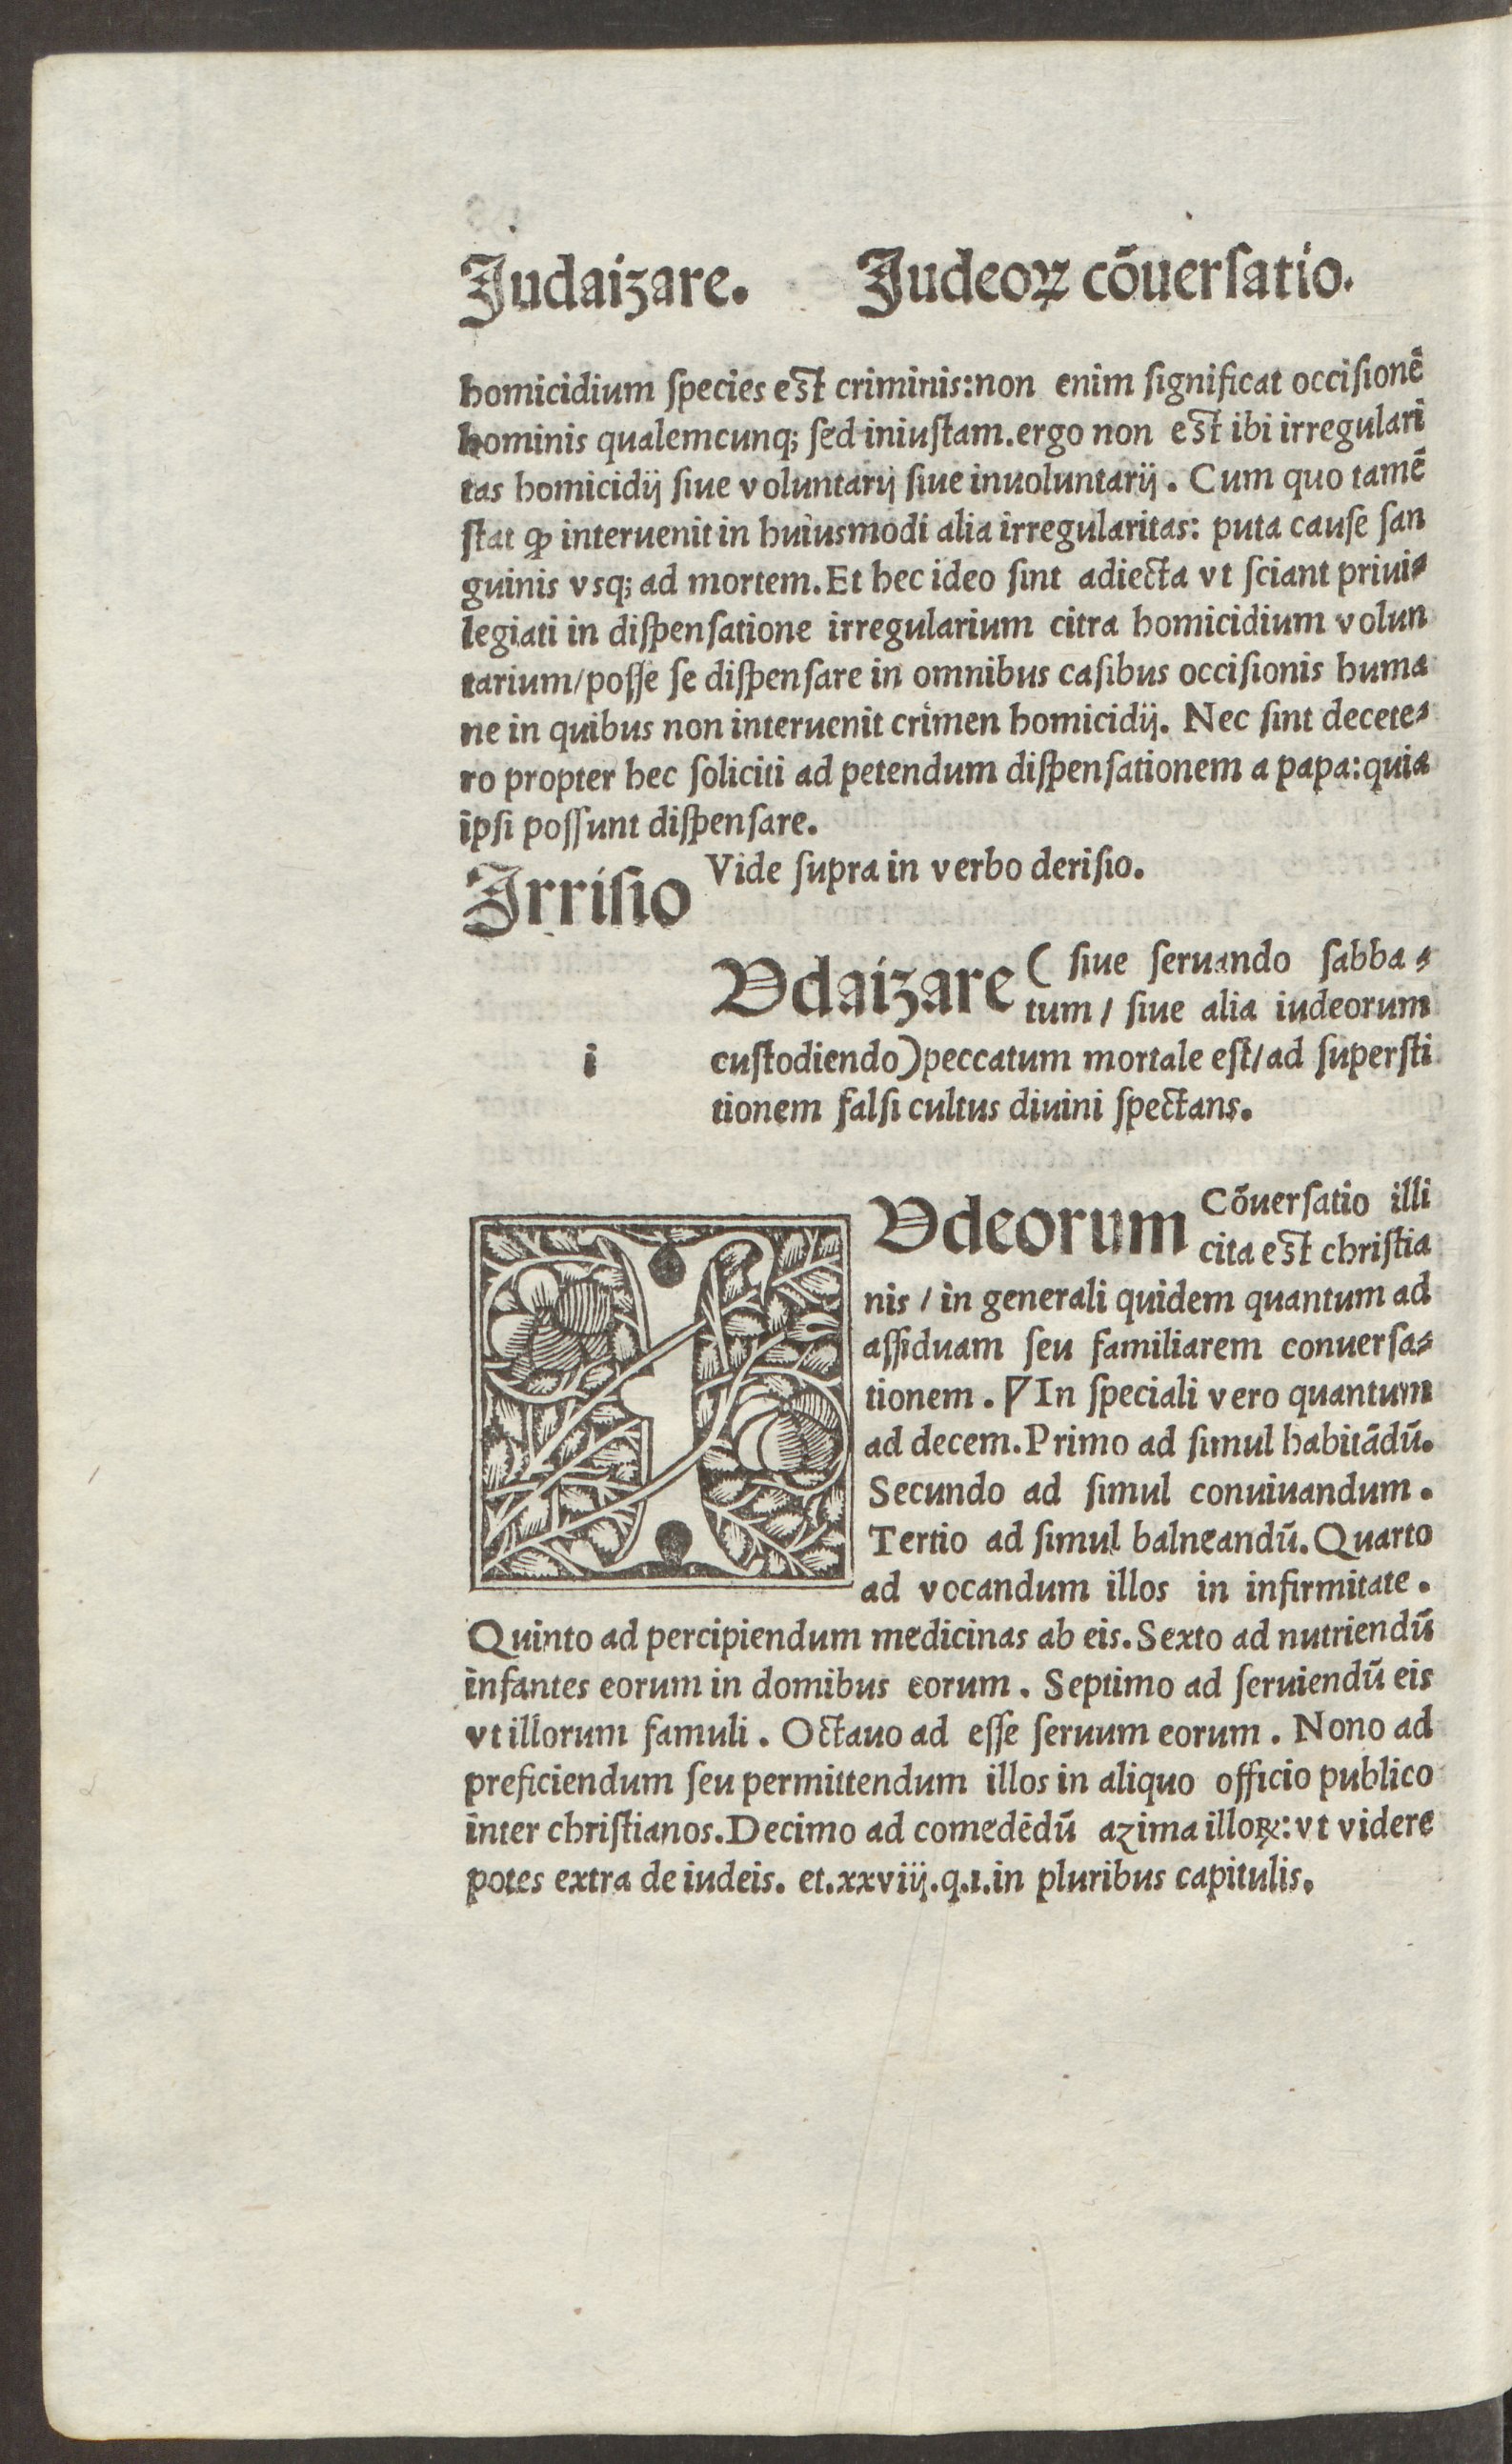 Judaizare. Judeoꝝ cõuerſatio.
homicidium ſpecies est criminis: non enim ſignificat occiſionẽ
hominis qualemcunq; ſed iniuſtam. ergo non est ibi irregulari
tas homicidij ſiue voluntarij ſiue inuoluntarij. Cum quo tamẽ
ſtat ꝙ interuenit in huiusmodi alia irregularitas: puta cauſe ſan
guinis vsq; ad mortem. Et hec ideo ſint adiecta vt ſciant priui⸗
legiati in diſpenſatione irregularium citra homicidium volun
tarium/poſſe ſe diſpenſare in omnibus caſibus occiſionis huma
ne in quibus non interuenit crimen homicidij. Nec ſint decete⸗
ro propter hec ſoliciti ad petendum diſpenſationem a papa: quia
ipſi poſſunt diſpenſare.
Irriſio Vide ſupra in verbo deriſio.
i Vdaizare (ſiue ſeruando ſabba⸗
tum/ ſiue alia iudeorum
cuſtodiendo) peccatum mortale eſt/ad ſuperſti
tionem falſi cultus diuini ſpectans.
I Vdeorum Cõuerſatio illi
cita est chriſtia
nis / in generali quidem quantum ad
aſſiduam ſeu familiarem conuerſa⸗
tionem. ⁋In ſpeciali vero quantum
ad decem. Primo ad ſimul habitãdũ.
Secundo ad ſimul conuiuandum.
Tertio ad ſimul balneandũ. Quarto
ad vocandum illos in infirmitate.
Quinto ad percipiendum medicinas ab eis. Sexto ad nutriendũ
infantes eorum in domibus eorum. Septimo ad ſeruiendũ eis
vt illorum famuli. Octauo ad eſſe ſeruum eorum. Nono ad
preficiendum ſeu permittendum illos in aliquo officio publico
inter chriſtianos. Decimo ad comedẽdũ azima illoꝝ: vt videre
potes extra de iudeis. et. xxviij. q. ı. in pluribus capitulis.